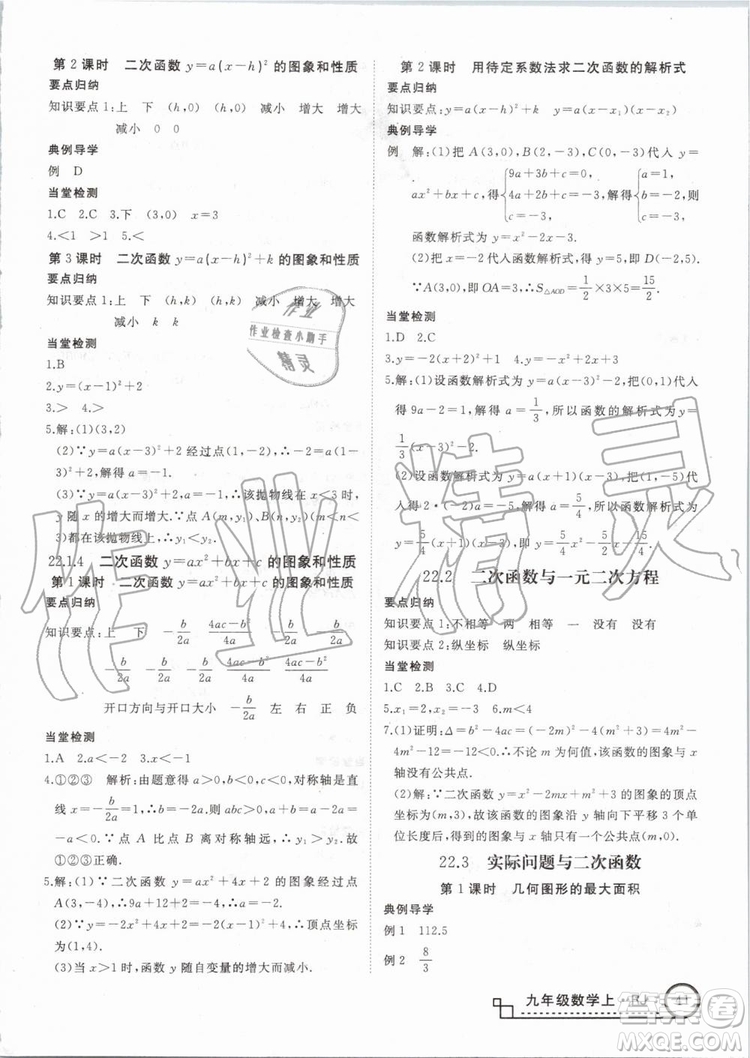 第2课时 二次函数 y=a(x-h)²的图象和性质
要点归纳
知识要点1:上 下 (h,0) (h,0) 减小 增大 增大
减小 0 0
典例导学
例 D
当堂检测
1.C 2.C 3.下 (3,0) x=3
4.<1 >1 5.<
第3课时 二次函数 y=a(x-h)²+k的图象和性质
要点归纳
知识要点:上 下 (h,k) (h,k) 减小 增大 增大
减小 k k
当堂检测
1.B
2.y=(x-1)²+2
3.> 4.>
5.解:(1)(3,2)
(2)∵y=a(x-3)²+2经过点(1,-2),∴-2=a(1-
3)²+2,解得a=-1.
(3)∵y=a(x-3)²+2,a=-1<0,∴该抛物线在对称轴左侧
y随x的增大而增大.∵点A(m,y₁),B(n,y₂)(m<n<
3)都在该抛物线上,∴y₁<y₂.
22.1.4 二次函数 y=ax²+bx+c的图象和性质
第1课时 二次函数 y=ax²+bx+c的图象和性质
要点归纳
知识要点:上 下 -b/2a -b/2a (4ac-b²)/4a
-b/2a -b/2a -b/2a (4ac-b²)/4a (4ac-b²)/4a
开口方向与开口大小 -b/2a 左 右 正 负
当堂检测
1.A 2.a<-2 3.x<-1
4.①②③ 解析:由题意可得a>0,b<0,c<0,对称轴是直
线x=-b/2a=1.∴b=-2a<0,∴2a+b=0,∴a+b+c<
0.∵点B比点A到对称轴远,∴y₁<y₂.综上所述,
①②③正确.
5.解:(1)∵二次函数y=ax²+4x+2的图象经过点
A(3,-4),∴9a+12+2=-4,∴a=-2.
(2)∵y=-2x²+4x+2=-2(x-1)²+4,∴顶点坐标
为(1,4).
(3)当x>1时,函数y随自变量的增大而减小.
第2课时 用待定系数法求二次函数的解析式
要点归纳
知识要点:y=a(x-h)²+k y=a(x-x₁)(x-x₂)
典例导学
例 解:(1)把A(3,0),B(2,-3),C(0,-3)代入y=
ax²+bx+c,得{9a+3b+c=0, 4a+2b+c=-3, c=-3, 解得{a=1, b=-2, c=-3,
函数解析式为y=x²-2x-3.
(2)把x=-2代入函数解析式得y=5,即D(-2,5).
∵A(3,0),即OA=3,∴S△AOD=1/2×3×5=15/2.
当堂检测
1.D 2.C
3.y=-2(x+2)²+1 4.y=-x²+x+2
5.解:(1)设函数解析式为y=a(x-3)²,把(0,1)代入
得9a=1,解得a=1/3,所以函数的解析式为y=
1/3(x-3)².
(2)设函数解析式为y=a(x+1)(x-2),把(0,
-2.5)代入得-2a=-2.5,解得a=5/4,即函数解析式为
y=5/4(x+1)(x-2),即y=5/4x²-5/4x-5/2.
22.2 二次函数与一元二次方程
要点归纳
知识要点1:不相等 两 相等 一 没有 没有
知识要点2:纵坐标 纵坐标
当堂检测
1.C 2.B 3.C 4.D
5.x₁=1,x₂=-3 6.m<4
7.(1)证明:Δ=b²-4ac=(-2m)²-4(m²+3)=4m²-
4m²-12=-12<0,∴不论m为何值,该函数的图象与x
轴没有公共点.
(2)解:∵二次函数y=x²-2mx+m²+3的图象的顶点
坐标为(m,3),故该函数的图象沿y轴向下平移3个单
位长度后,得到的函数的图象与x轴只有一个公共点(m,0).
22.3 实际问题与二次函数
第1课时 几何图形的最大面积
典例导学
例1 112.5
例2 8/3
九年级数学上 RJ 41
作业
作业检查小助手
精灵
作业精灵
答案圈
MXQE.COM